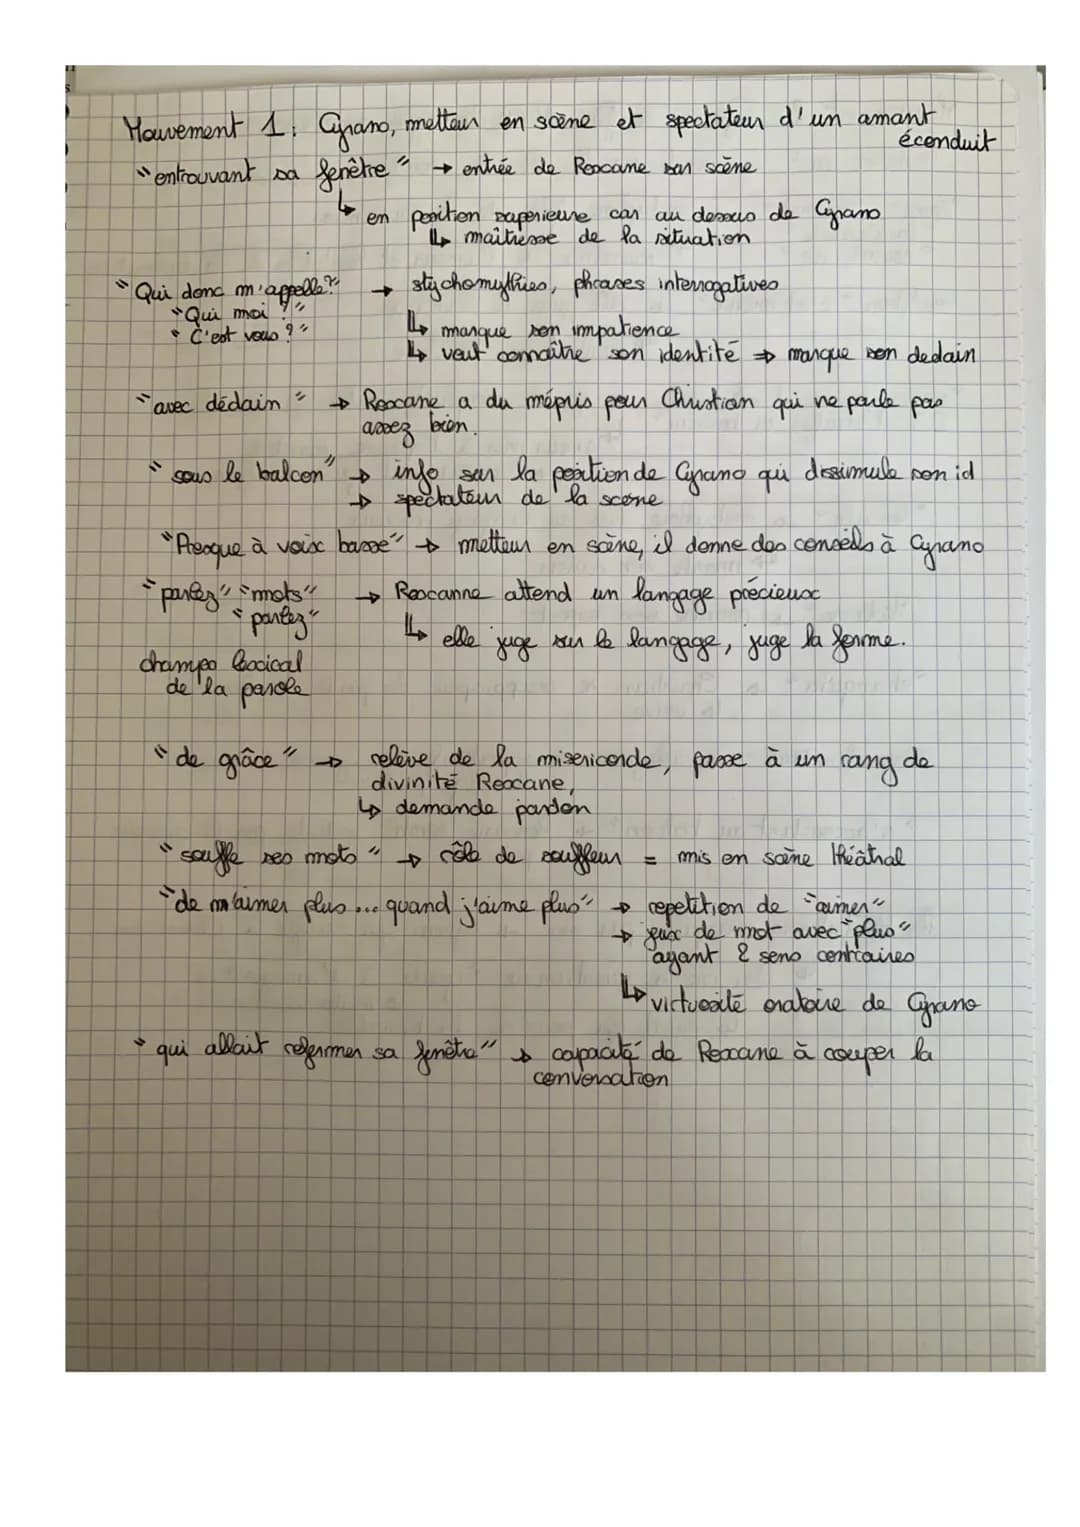 Mouvement 1: Cyrano, metteur en scène et spectateur d'un amant
éconduit
"entrouvant sa fenêtre" → entrée de Roxane sur scène
↳ en position superieure car au dessus de Cyrano
↳ maîtresse de la situation
"Qui donc m'appelle?" → stychomythies, phrases interrogatives
"Qui moi?"
"C'est vous?"
↳ marque son impatience
↳ veut connaître son identité ⇒ marque son dedain
"avec dédain" → Roxane a du mépris pour Christian qui ne parle pas
assez bien.
"sous le balcon" → info sur la position de Cyrano qui dissimule son id
→ spectateur de la scène
"Presque à voix basse" → metteur en scène, il donne des conseils à Cyrano
"parlez" "mots" → Roxanne attend un langage précieux
"parlez"
↳ elle juge sur le langage, juge la forme.
champs lexical
de la parole
"de grâce" → relève de la misericorde, passe à un rang de
divinité Roxane,
↳ demande pardon
"souffle ses mots" → rôle de souffleur = mis en scène théâtral
"de m'aimer plus... quand j'aime plus" → repetition de "aimer"
→ jeux de mot avec "plus"
ayant 2 sens contraires
↳ virtuosité oratoire de Cyrano
"qui allait refermer sa fenêtre" → capacité de Roxane à couper la
conversation